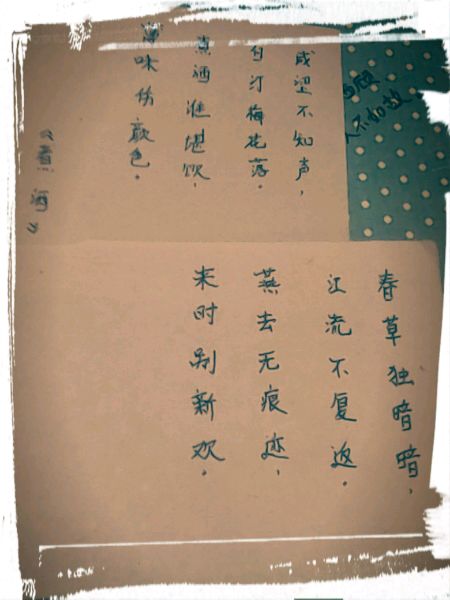 顾
不如故
咸望不知声，
白汀梅花落。
煮酒谁堪饮，
味伤颜色。
《煮酒》
春草独暗暗，
江流不复返。
燕去无痕迹，
来时别新欢。